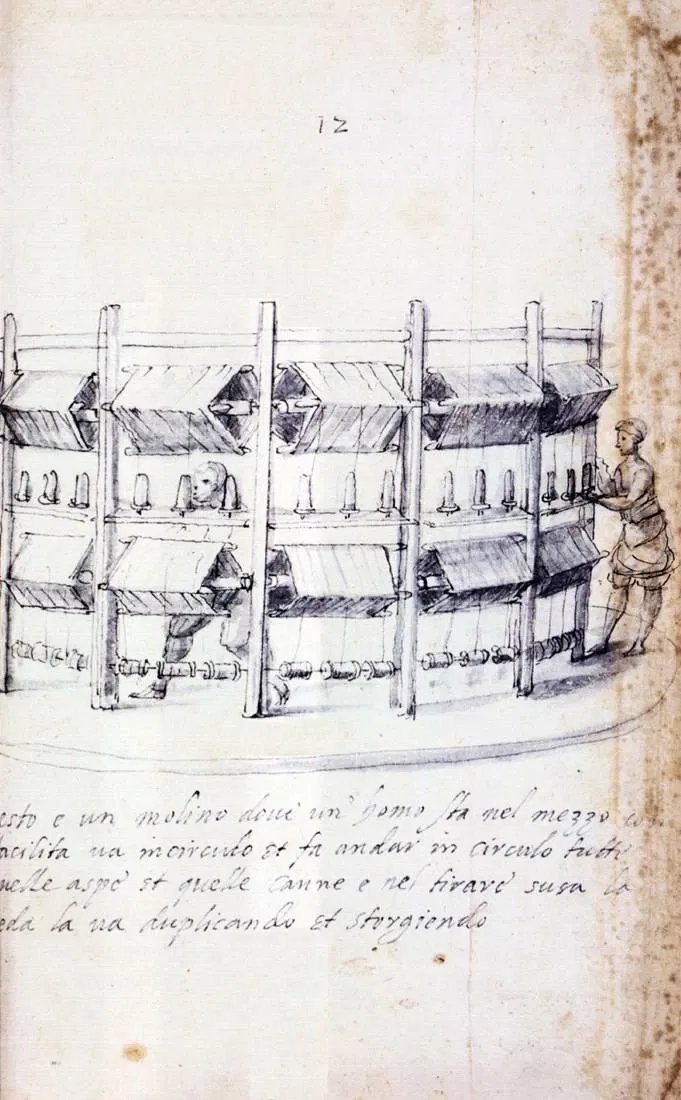 12
esto e un molino doue un' homo sta nel mezzo con
acilita ua incirculo et fa andar in circulo tutte
uelle aspe et quelle canne e nel tirare susa la
eda la ua duplicando et storgiendo